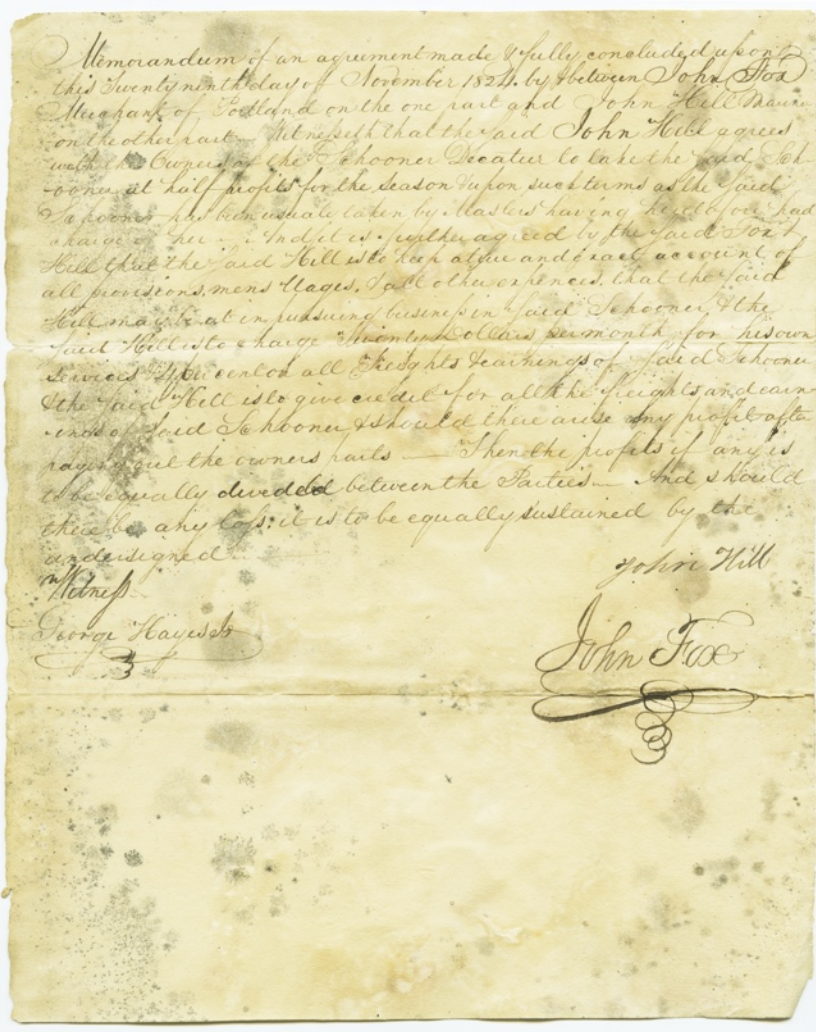 Memorandum of an agreement made & fully concluded upon
this Twenty ninth day of November 1824. by & between John Fox
Merchant of Portland on the one part and John Hill
on the other part Witnesseth that the said John Hill agrees
with the Owners of the Schooner Decatur to take the said Sch-
ooner at half profits for the season & upon such terms as the said
Schooner has been usualy taken by Masters having heretofore had
charge of her And it is further agreed by the said Fox &
Hill that the said Hill is to keep a true and exact account of
all provisions, mens Wages, & all other expences, that the said
Hill may be at in pursuing business in said Schooner, & the
said Hill is to charge Dollars per month for his own
services & per cent on all freights & earnings of said Schooner
& the said Hill is to give credit for all the freights and earn-
ings of said Schooner & should there arise any profit after
paying out the owners parts — Then the profits if any is
to be equally divided between the Parties — And should
there be any loss: it is to be equally sustained by the
undersigned
Witness
John Hill
George Hayes Jr
John Fox